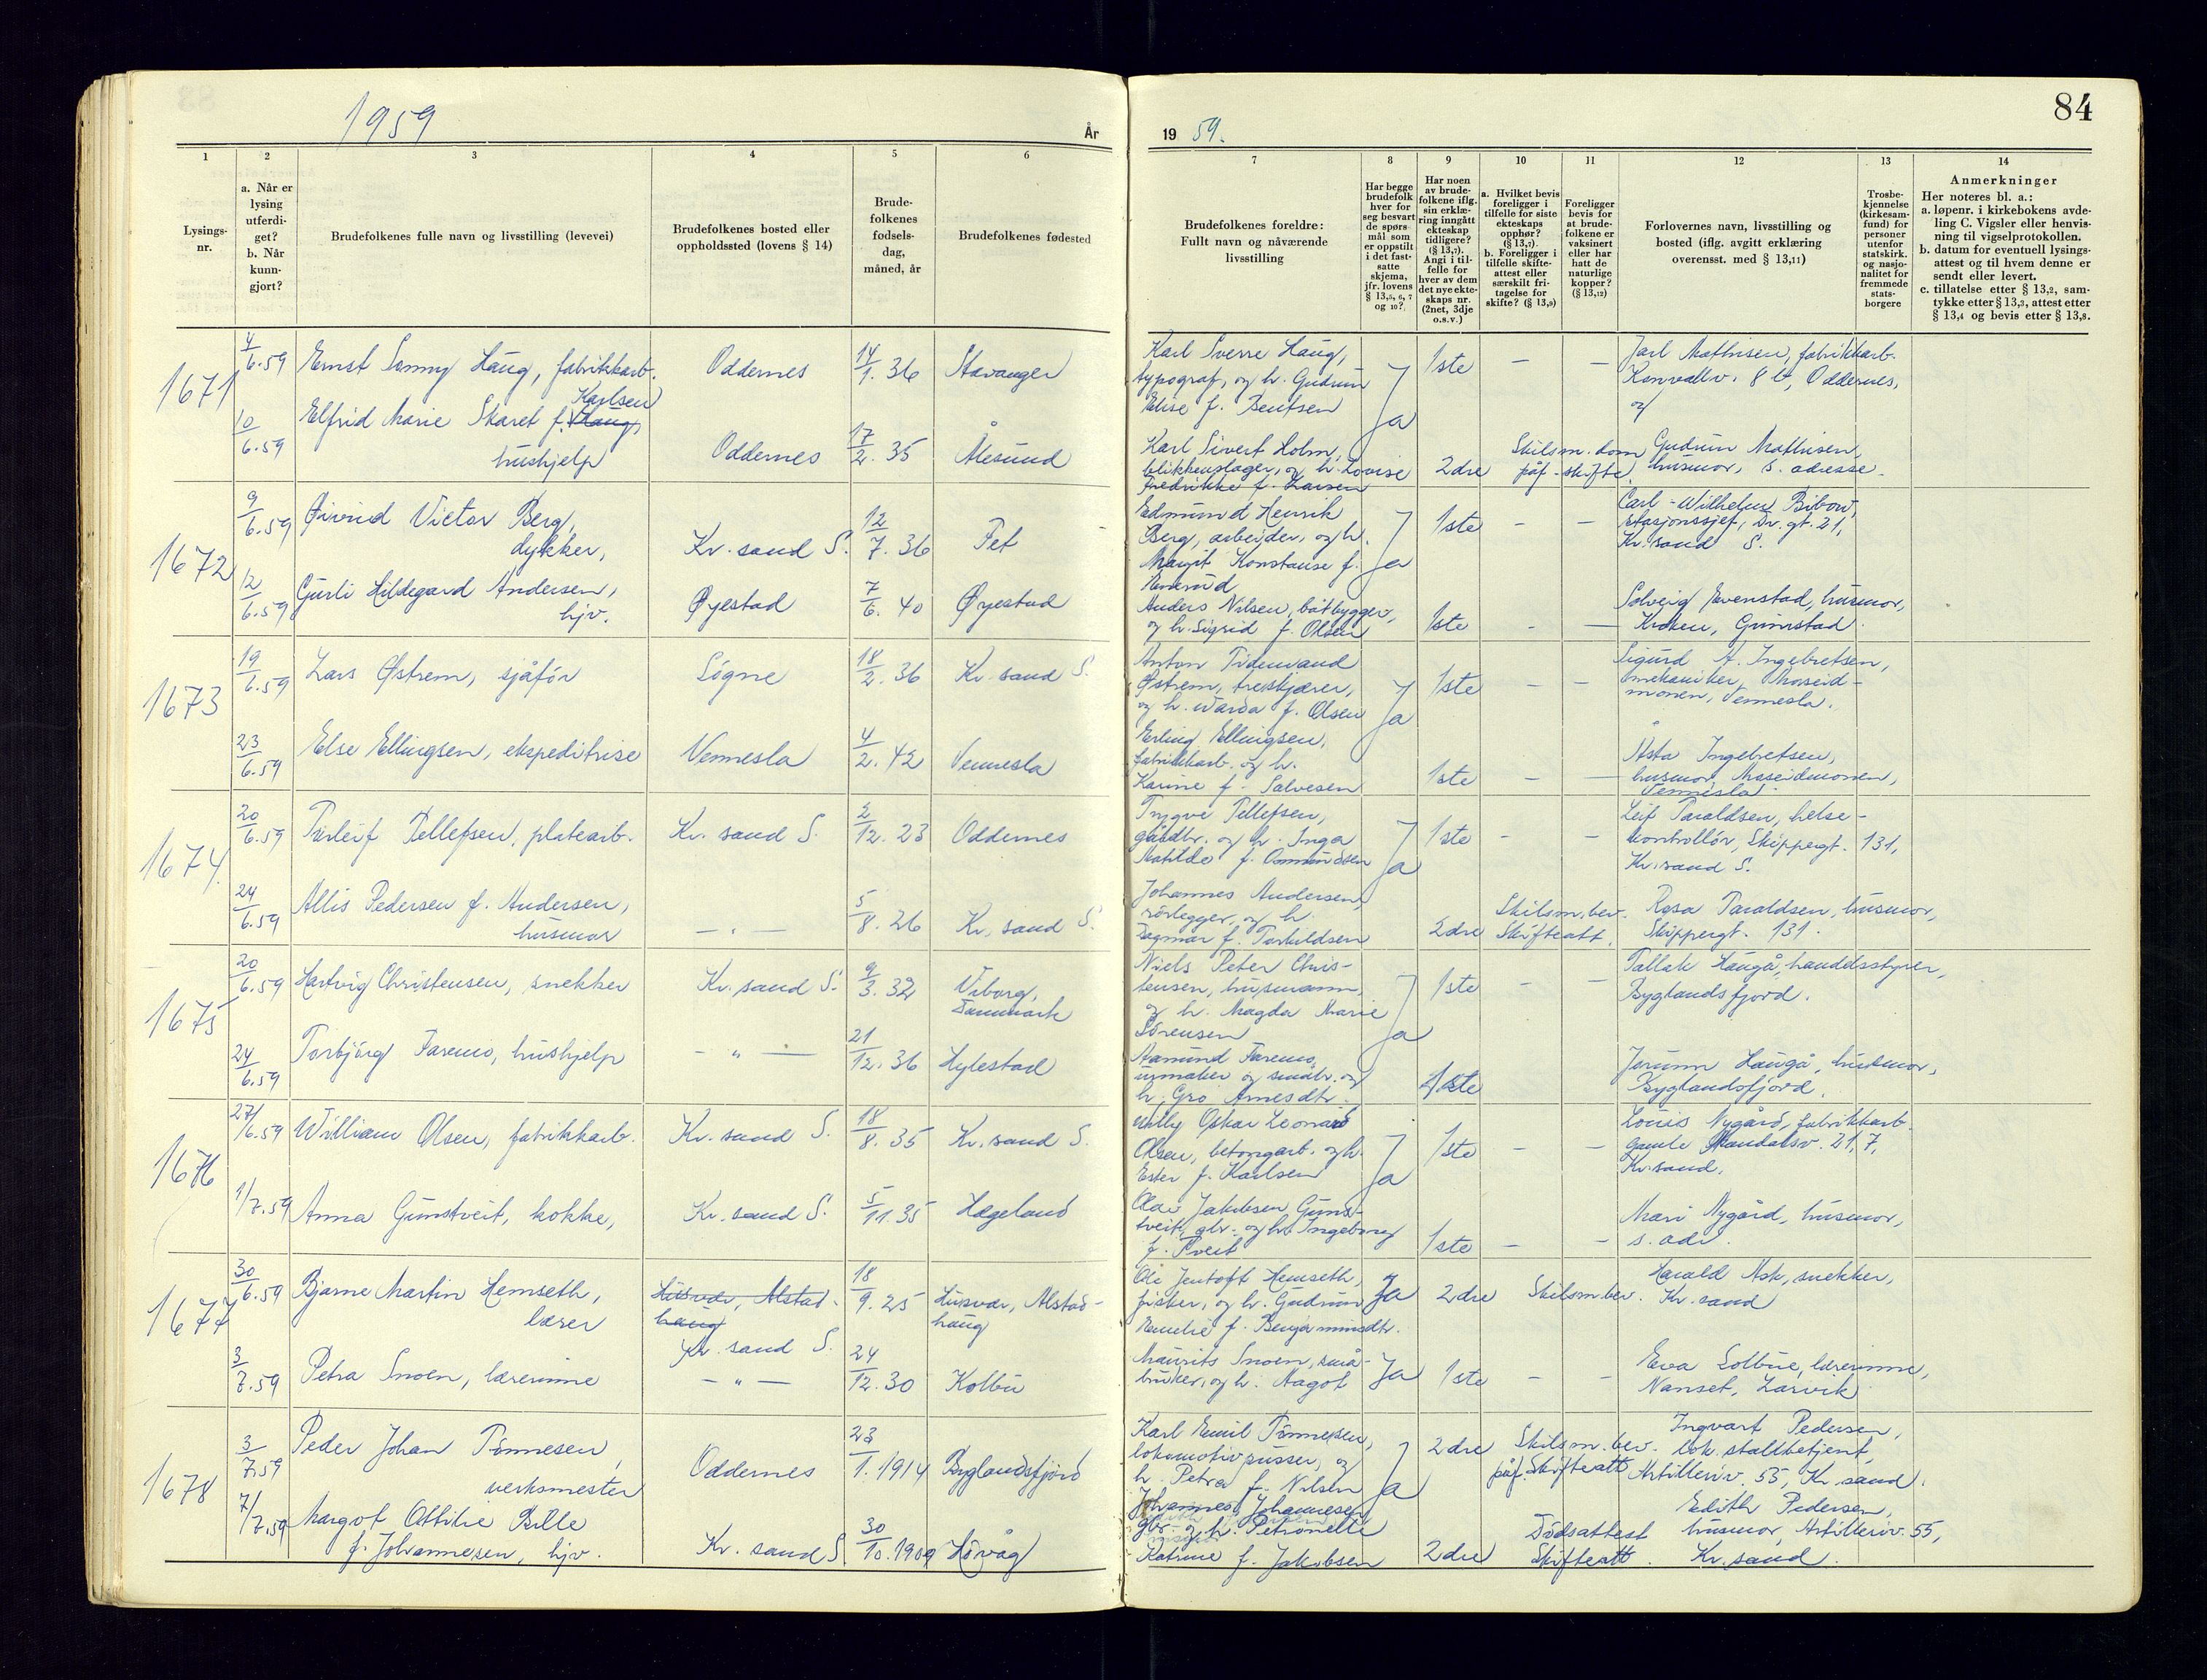 1959
År
19 59.
84
1
2
3
4
5
6
7
8
9
10
11
12
13
14
Lysings-
nr.
a. Når er
lysing
utferdi-
get?
b. Når
kunn-
gjort?
Brudefolkenes fulle navn og livsstilling (levevei)
Brudefolkenes bosted eller
oppholdssted (lovens § 14)
Brude-
folkenes
fødsels-
dag,
måned, år
Brudefolkenes fødested
Brudefolkenes foreldre:
Fullt navn og nåværende
livsstilling
Har begge
brudefolk
hver for
seg besvart
de spørs-
mål som
er oppstilt
i det fast-
satte
skjema,
jfr. lovens
§ 13,5, 6, 7
og 10?
Har noen
av brude-
folkene iflg.
sin erklæ-
ring inngått
ekteskap
tidligere?
(§ 13,7).
Angi i til-
felle for
hver av dem
det nye ekte-
skaps nr.
(2net, 3dje
o.s.v.)
a. Hvilket bevis
foreligger i
tilfelle for siste
ekteskaps
opphør?
(§ 13,7).
b. Foreligger i
tilfelle skifte-
attest eller
særskilt fri-
tagelse for
skifte? (§ 13,9)
Foreligger
bevis for
at brude-
folkene er
vaksinert
eller har
hatt de
naturlige
kopper?
(§ 13,12)
Forlovernes navn, livsstilling og
bosted (iflg. avgitt erklæring
overensst. med § 13,11)
Trosbe-
kjennelse
(kirkesam-
fund) for
personer
utenfor
statskirk.
og nasjo-
nalitet for
fremmede
stats-
borgere
Anmerkninger
Her noteres bl. a.:
a. løpenr. i kirkebokens avde-
ling C. Vigsler eller henvis-
ning til vigselprotokollen.
b. datum for eventuell lysings-
attest og til hvem denne er
sendt eller levert.
c. tillatelse etter § 13,2, sam-
tykke etter § 13,3, attest etter
§ 13,4 og bevis etter § 13,8.
1671
4/6.59 Ernst Sonny Haug, fabrikkarb. Oddernes 14/1. 36 Stavanger
Karl Sverre Haug,
typograf, og h. Gudrun
Elise f. Bentsen
Ja 1ste – –
Jarl Mathisen, fabrikkarb.
Konvallv. 8 b, Oddernes,
og
Karlsen
10/6.59 Elfrid Marie Skaret f. Haug,
hushjelp Oddernes 17/2. 35 Ålesund
Karl Sivert Holm,
blikkenslager, og h. Lovise
Fredrikke f. Larsen
2dre Skilsm. dom
påf. skifte.
Gudrun Mathisen,
husmor, s. adresse.
1672
9/6.59 Øivind Victor Berg,
dykker, Kr. sand S. 12/7. 36 Fet
Edmund Henrik
Berg, arbeider, og h.
Margit Konstanse f.
Ja 1ste – –
Carl-Wilhelm Bibow,
stasjonssjef, Dr. gt. 21,
Kr. sand S.
12/6.59 Gurli Hildegard Andersen,
hjv. Øyestad 7/6. 40 Øyestad
Anders Nilsen, båtbygger,
og h. Sigrid f. Olsen
1ste – –
Solveig Evenstad, husmor,
Kroken, Grimstad.
1673
19/6.59 Lars Østrem, sjåfør Søgne 18/2. 36 Kr. sand S.
Anton Tidemand
Østrem, treskjærer,
og h. Warda f. Olsen
Ja 1ste – –
Sigurd A. Ingebretsen,
mekaniker, Moseid-
monen, Vennesla.
23/6.59 Else Ellingsen, ekspeditrise Vennesla 4/2. 42 Vennesla
Erling Ellingsen,
fabrikkarb. og h.
Karine f. Salvesen
1ste – –
Åsta Ingebretsen,
husmor, Moseidmonen,
Vennesla.
1674.
20/6.59 Torleif Tellefsen, platearb. Kr. sand S. 2/12. 23 Oddernes
Trygve Tellefsen,
gårdbr. og h. Inga
Matilde f. Omundsen
Ja 1ste – –
Leif Taraldsen, helse-
kontrollør, Skippergt. 131,
Kr. sand S.
24/6.59 Allis Pedersen f. Andersen,
husmor – " – 5/8. 26 Kr. sand S.
Johannes Andersen,
rørlegger, og h.
Dagmar f. Torkildsen
2dre Skilsm. bev.
Skifteatt.
Rosa Taraldsen, husmor,
Skippergt. 131.
1675
20/6.59 Hartvig Christensen, snekker Kr. sand S. 9/3. 32 Viborg,
Danmark
Niels Peter Chris-
tensen, husmann,
og h. Magda Marie
Sørensen
Ja 1ste – –
Tallak Haugå, handelsstyrer,
Byglandsfjord.
24/6.59 Torbjørg Faremo, hushjelp – " – 21/12. 36 Hylestad
Aamund Faremo,
urmaker og småbr. og
h. Gro Arnesdtr.
1ste
Jorunn Haugå, husmor,
Byglandsfjord.
1676
27/6.59 William Olsen, fabrikkarb. Kr. sand S. 18/8. 35 Kr. sand S.
Willy Oskar Leonard
Olsen, betongarb. og h.
Ester f. Karlsen
Ja 1ste – –
Louis Nygård, fabrikkarb.
Gamle Mandalsv. 21, 7,
Kr. sand.
1/7.59 Anna Gunstveit, kokke, Kr. sand S. 5/11. 35 Hægeland
Olav Jakobsen Gunst-
veit, gbr. og h. Ingeborg
f. Tveit
1ste – –
Mari Nygård, husmor,
s. adr.
1677
30/6.59 Bjarne Martin Hemseth,
lærer Husvær, Alstad-
haug
Kr. sand S. 18/9. 25 Husvær, Alstad-
haug
Ole Jentoft Hemseth,
fisker, og h. Gudrun
Emelie f. Benjaminsdtr.
Ja 2dre Skilsm. bev.
Harald Ask, snekker,
Kr. sand
3/7.59 Petra Snoen, lærerinne – " – 24/12. 30 Kolbu
Maurits Snoen, små-
bruker, og h. Aagot
Ja 1ste – –
Eva Solbue, lærerinne,
Nanset, Larvik
1678
3/7.59 Peder Johan Tønnesen,
verksmester Oddernes 23/1. 1914 Byglandsfjord
Karl Emil Tønnesen,
lokomotivpusser, og
h. Petra f. Nilsen
Ja 2dre Skilsm. bev.
påf. Skifteatt
Ingvart Pedersen,
lok. stallbetjent,
Artilleriv. 55, Kr. sand.
7/7.59 Margot Ottilie Bille
f. Johannesen, hjv. Kr. sand S. 30/10. 1909 Høvåg
Johannes Johannesen
gbr. og h. Petronelle
Katrine f. Jakobsen
2dre Dødsattest
Skifteatt.
Edith Pedersen,
husmor, Artilleriv. 55,
Kr. sand.